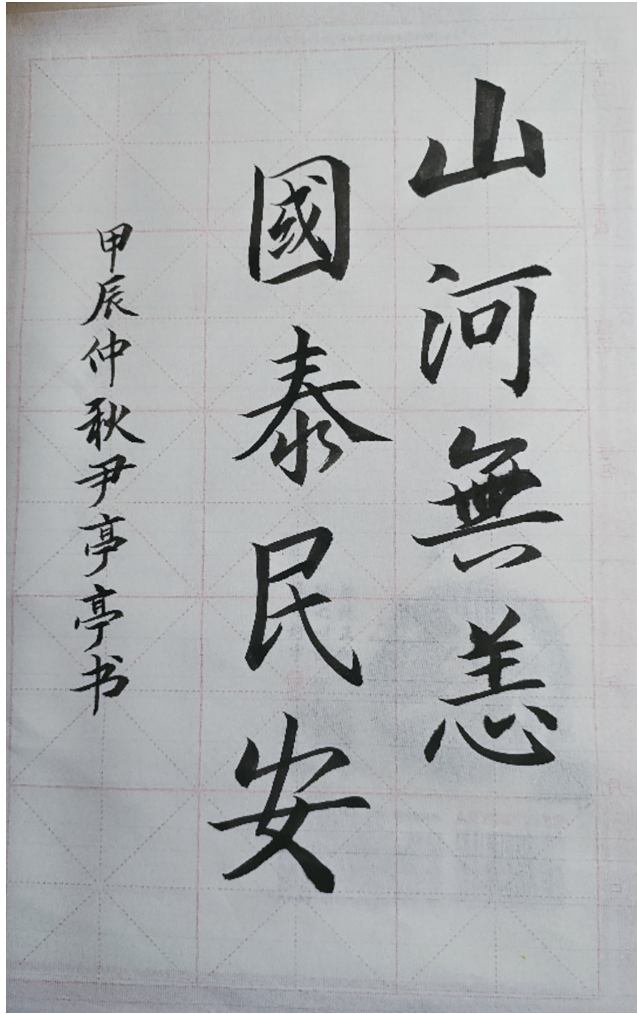 山河無恙
國泰民安
甲辰仲秋尹亭亭书